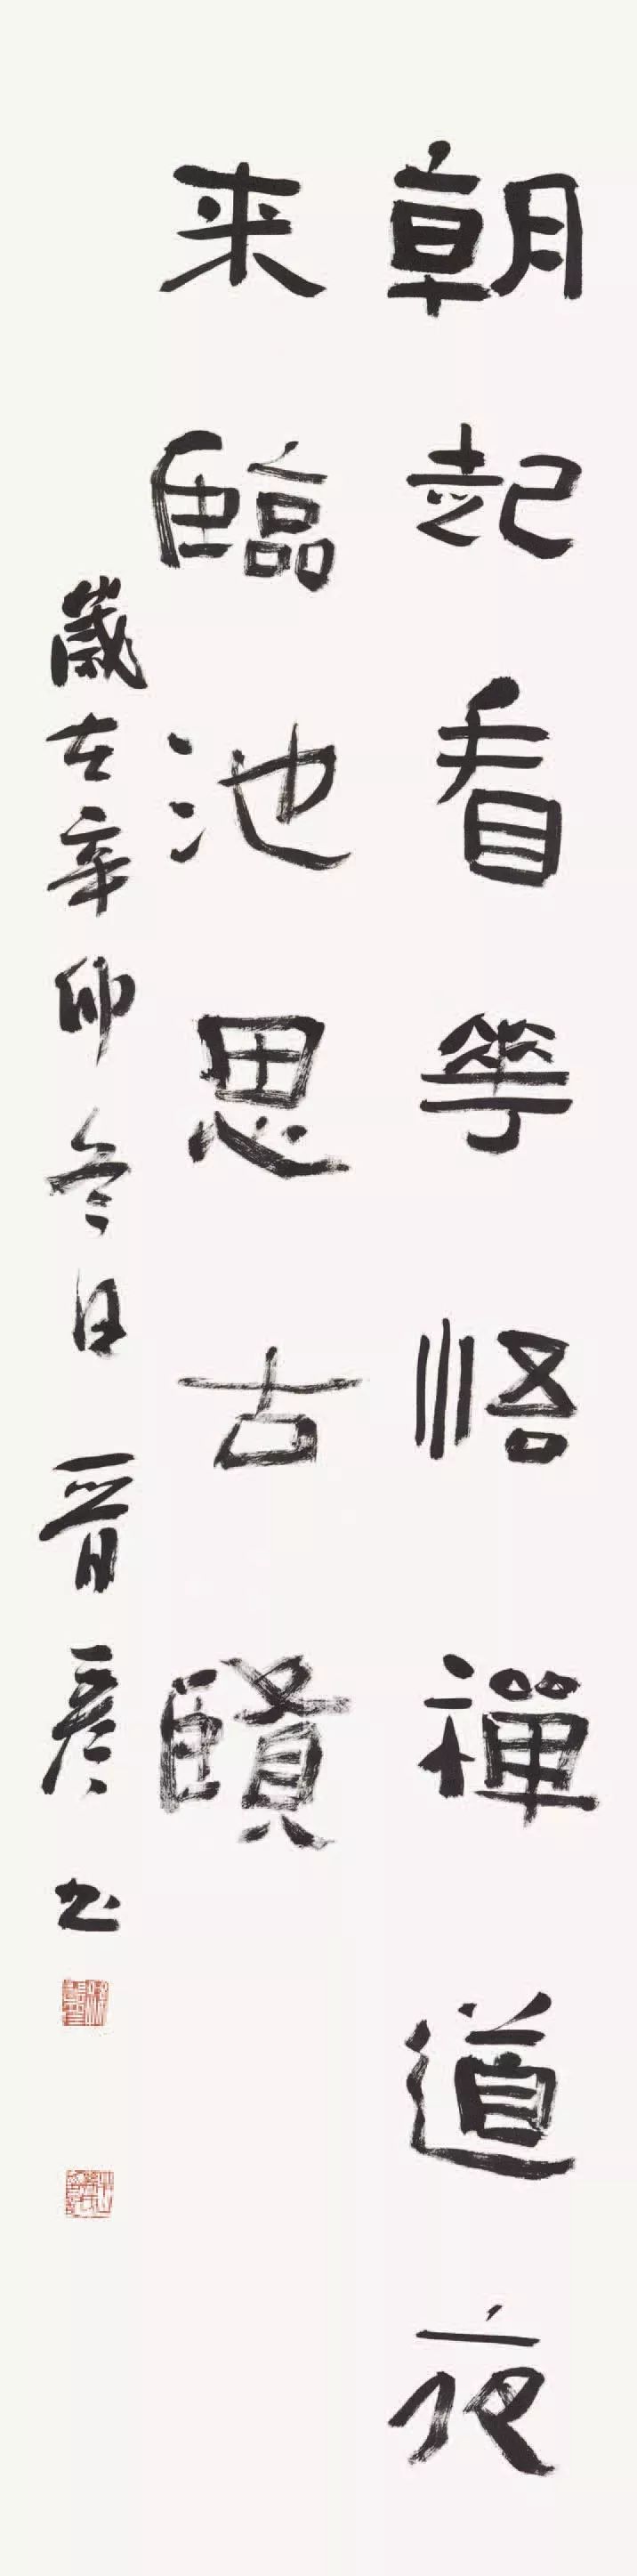 朝起看華悟禪道夜
来臨池思古賾
歲在辛卯冬日晉彥书